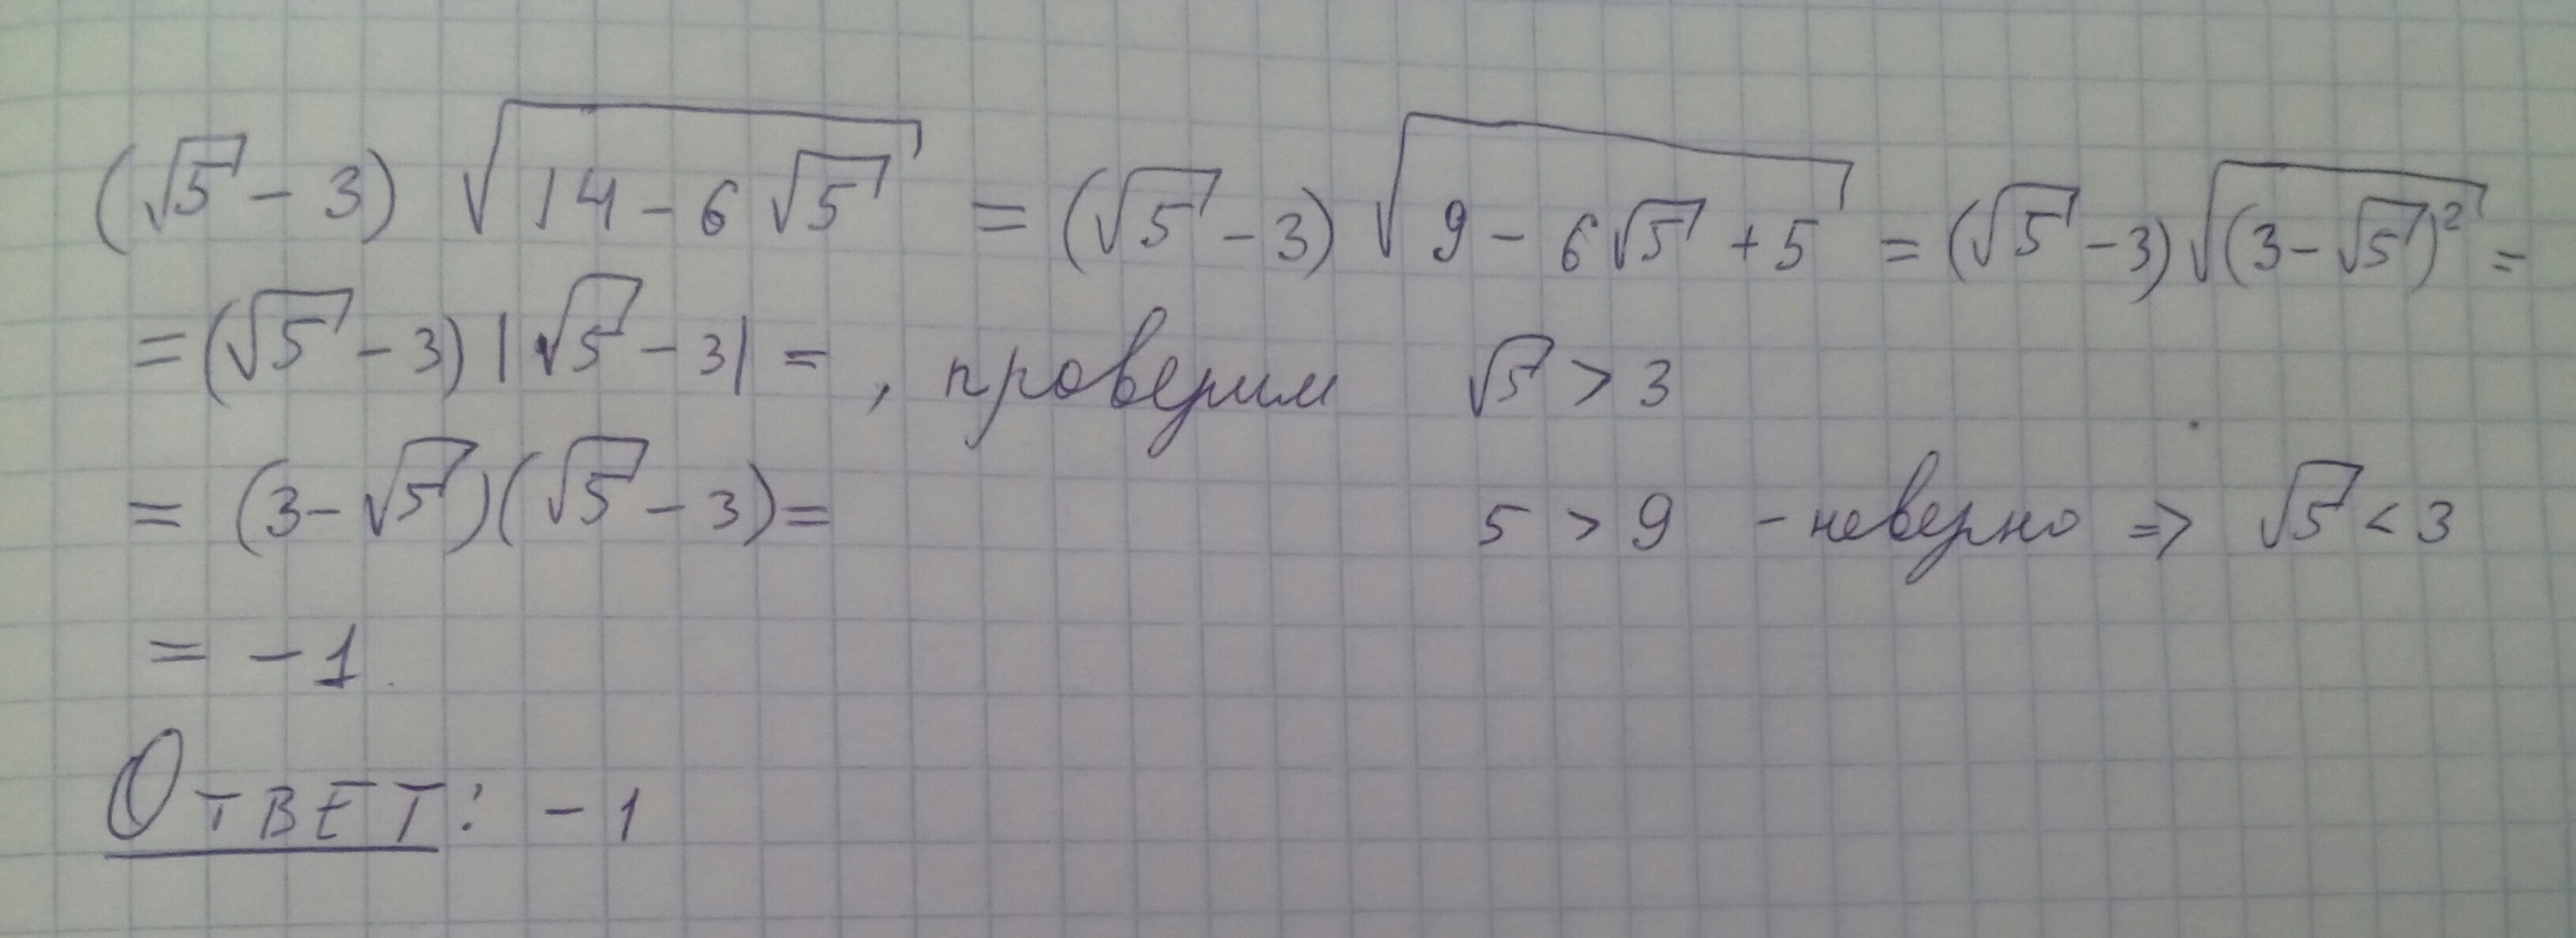 (√5 - 3) √(14 - 6√5) = (√5 - 3) √(9 - 6√5 + 5) = (√5 - 3) √((3 - √5)²) =
= (√5 - 3) |√5 - 3| = , проверим √5 > 3
= (3 - √5)(√5 - 3) = 5 > 9 - неверно ⇒ √5 < 3
= -1.
Ответ: -1